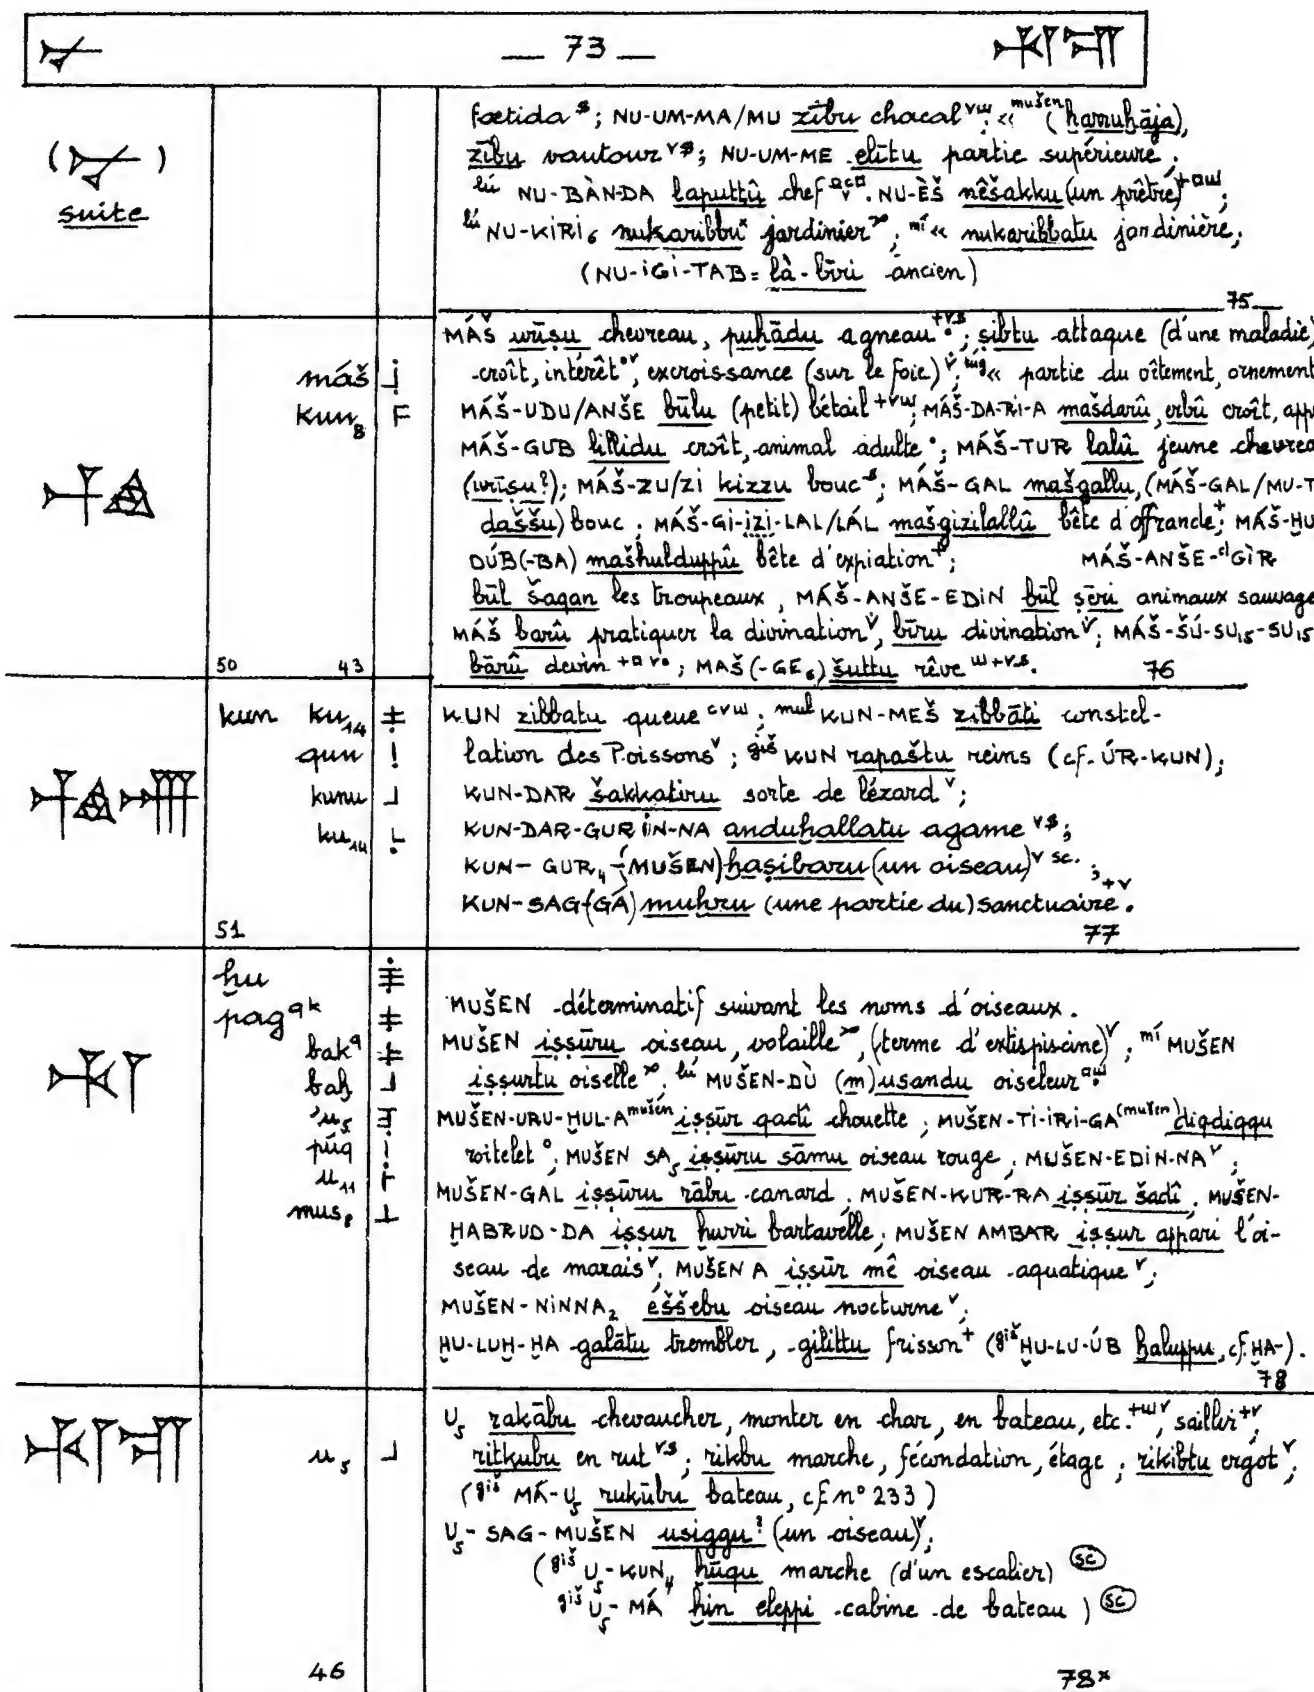 — 73 —
(𒉡) suite
foetida ; NU-UM-MA/MU zību chacal ; « mušen (ḫarruḫāja),
zību vautour ; NU-UM-ME elītu partie supérieure ;
lú NU-BÀN-DA laputtû chef . NU-ÈŠ nêšakku (un prêtre) ;
lú NU-KIRI₆ nukaribbu jardinier ; mí « nukaribbatu jardinière ;
(NU-IGI-TAB = là-bīri ancien)
75
MÁŠ urīṣu chevreau, puḫādu agneau ; ṣibtu attaque (d'une maladie)
máš
croît, intérêt, excroissance (sur le foie) ; túg « partie du vêtement, ornement
kun₈
MÁŠ-UDU/ANŠE būlu (petit) bétail ; MÁŠ-DA-RI-A mašdarû, erbû croît, app
MÁŠ-GUB lillidu croît, animal adulte ; MÁŠ-TUR lalû jeune chevrea
(urīṣu?) ; MÁŠ-ZU/ZI kizzu bouc ; MÁŠ-GAL mašgallu, (MÁŠ-GAL/MU-T
daššu) bouc ; MÁŠ-GI-IZI-LAL/LÁL mašgizilallû bête d'offrande ; MÁŠ-ḪU
DÚB(-BA) mašḫulduppû bête d'expiation ; MÁŠ-ANŠE-dGÌR
būl Šaqan les troupeaux , MÁŠ-ANŠE-EDIN būl ṣēri animaux sauvage
MÁŠ barû pratiquer la divination, bīru divination ; MÁŠ-ŠÚ-SU₁₅-SU₁₅
bārû devin ; MAŠ(-GE₆) šuttu rêve .
50 43 76
kun ku₁₄
KUN zibbatu queue ; mul KUN-MEŠ zibbāti constel-
qun
lation des Poissons ; giš KUN rapaštu reins (cf. ÚR-KUN) ;
kunu
KUN-DAR šakkatiru sorte de lézard ;
ku₁₄
KUN-DAR-GURIN-NA anduḫallatu agame ;
KUN-GUR₄-(MUŠEN) ḫaṣibaru (un oiseau) ;
KUN-SAG(GÁ) muḫru (une partie du) sanctuaire .
51 77
ḫu
pag q k
MUŠEN déterminatif suivant les noms d'oiseaux.
bak q
MUŠEN iṣṣūru oiseau, volaille, (terme d'extispiscine) ; mí MUŠEN
baḫ
iṣṣurtu oiselle ; lú MUŠEN-DÙ (m)usandu oiseleur
'u₅
MUŠEN-URU-ḪUL-A mušen iṣṣūr qadî chouette ; MUŠEN-TI-IRI-GA (mušen) diqdiqqu
púg
roitelet ; MUŠEN SA₅ iṣṣūru sāmu oiseau rouge ; MUŠEN-EDIN-NA ;
u₁₁
MUŠEN-GAL iṣṣūru rābu canard ; MUŠEN-KUR-RA iṣṣūr šadî ; MUŠEN-
mus₈
ḪABRUD-DA iṣṣur ḫurri bartavelle ; MUŠEN AMBAR iṣṣur appari l'oi-
seau de marais ; MUŠEN A iṣṣūr mê oiseau aquatique ;
MUŠEN-NINNA₂ eššebu oiseau nocturne ;
ḪU-LUḪ-ḪA galātu trembler , gilittu frisson (giš ḪU-LU-ÚB ḫaluppu, cf. ḪA-) .
78
U₅ rakābu chevaucher, monter en char, en bateau, etc. , saillir ;
u₅
ritkubu en rut ; rikbu marche, fécondation, étage ; rikibtu ergot ;
(giš MÁ-U₅ rukūbu bateau, cf. n° 233)
U₅-SAG-MUŠEN usiggu? (un oiseau) ;
(giš U₅-KUN₄ ḫūqu marche (d'un escalier) SC
giš U₅-MÁ ḫin eleppi cabine de bateau ) SC
46 78ˣ